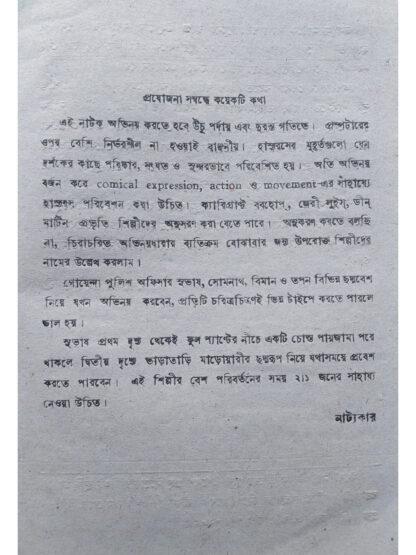 প্রযোজনা সম্বন্ধে কয়েকটি কথা
এই নাটক অভিনয় করতে হবে উঁচু পর্দায় এবং দুরন্ত গতিতে। প্রম্পটারের
ওপর বেশি নির্ভরশীল না হওয়াই বাঞ্ছনীয়। হাস্যরসের মুহূর্তগুলো যেন
দর্শকের কাছে পরিষ্কার, সংযত ও সুন্দরভাবে পরিবেশিত হয়। অতি অভিনয়
বর্জন করে comical expression, action ও movement-এর সাহায্যে
হাস্যরস পরিবেশন করা উচিত। ক্যারিগ্রান্ট বব্‌হোপ, জেরী লুইস, ডীন
মার্টিন প্রভৃতি শিল্পীদের অনুসরণ করা যেতে পারে। অনুকরণ করতে বলছি
না, চিরাচরিত অভিনয়ধারার ব্যতিক্রম বোঝাবার জন্য উপরোক্ত শিল্পীদের
নামের উল্লেখ করলাম।
গোয়েন্দা পুলিশ অফিসার সুভাষ, সোমনাথ, বিমান ও তপন বিভিন্ন ছদ্মবেশ
নিয়ে যখন অভিনয় করবেন, প্রতিটি চরিত্রচিত্রণই ভিন্ন টাইপে করতে পারলে
ভাল হয়।
সুভাষ প্রথম দৃশ্য থেকেই ফুল প্যান্টের নীচে একটি চোস্ত পায়জামা পরে
থাকলে দ্বিতীয় দৃশ্যে তাড়াতাড়ি মাড়োয়ারীর ছদ্মরূপ নিয়ে যথাসময়ে প্রবেশ
করতে পারবেন। এই শিল্পীর বেশ পরিবর্তনের সময় ২/১ জনের সাহায্য
নেওয়া উচিত।
নাট্যকার